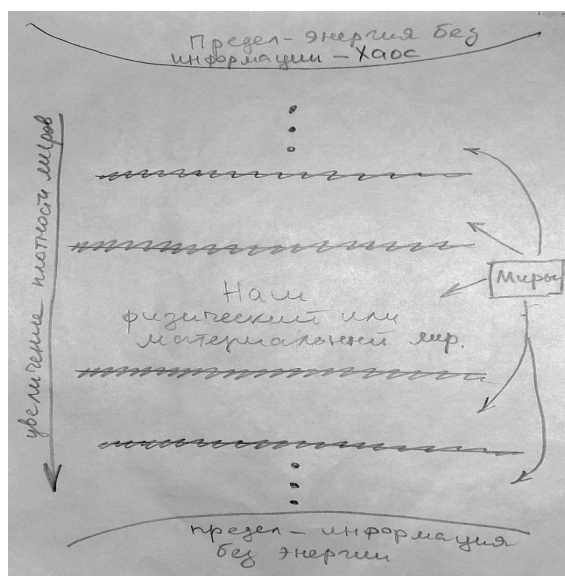 Предел – энергия без
информации – Хаос
увеличение плотности миров
Миры
Наш
физический или
материальный мир.
предел – информация
без энергии